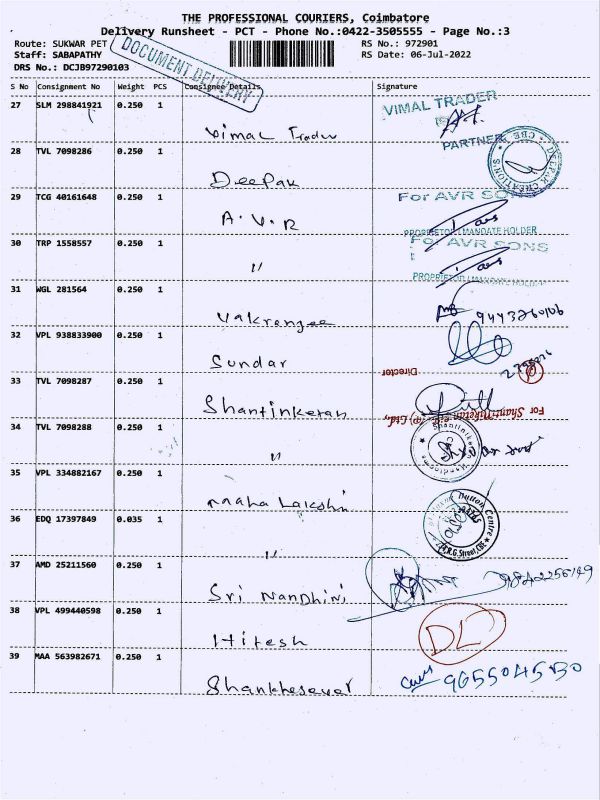 THE PROFESSIONAL COURIERS, Coimbatore
Delivery Runsheet - PCT - Phone No.:0422-3505555 - Page No.:3
Route: SUKWAR PET
RS No.: 972901
Staff: SABAPATHY
RS Date: 06-Jul-2022
DRS No.: DCJB97290103
DOCUMENT DELIVERY
S No Consignment No Weight PCS Consignee Details Signature
27 SLM 298841921 0.250 1
VIMAL TRADER
Vimal Trader
PARTNER
28 TVL 7098286 0.250 1
DEEPAK CREATIONS CBE
Deepak
29 TCG 40161648 0.250 1
For AVR SONS
A.V.R
PROPRIETOR / MANDATE HOLDER
30 TRP 1558557 0.250 1
For AVR SONS
"
PROPRIETOR / MANDATE HOLDER
31 WGL 281564 0.250 1
Vakrangee
9443260106
32 VPL 938833900 0.250 1
Sundar
33 TVL 7098287 0.250 1
Director
Shantinketan
For Shanti Niketan (P) Ltd.,
34 TVL 7098288 0.250 1
"
35 VPL 334882167 0.250 1
maha Lakshi
36 EDQ 17397849 0.035 1
Button Centre
R.G.Street, CBE
"
37 AMD 25211560 0.250 1
Sri Nandhini
98402256149
38 VPL 499440598 0.250 1
Hitesh
DL
39 MAA 563982671 0.250 1
Shankheswar
9655045130